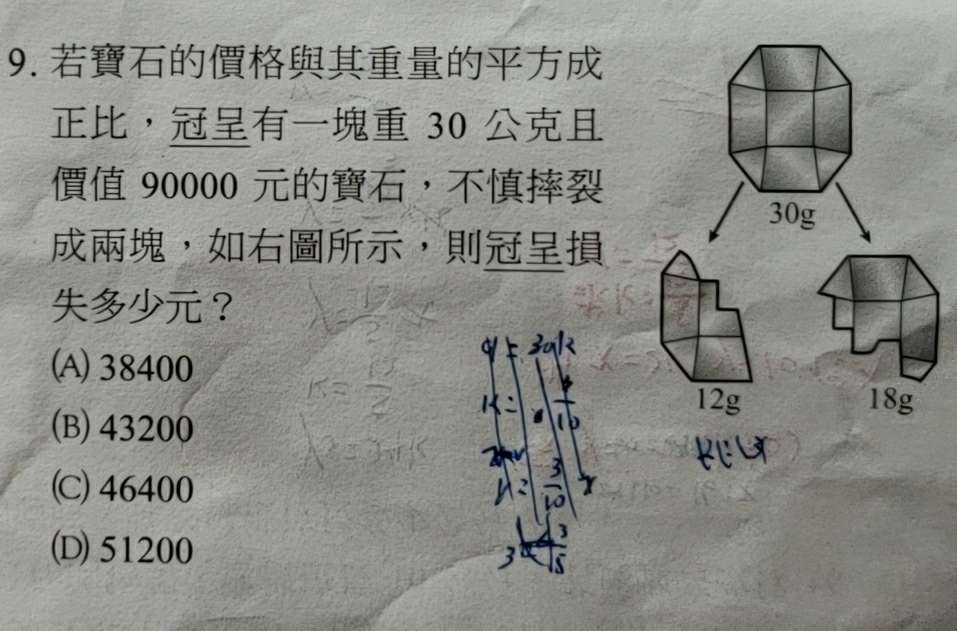 9. 若寶石的價格與其重量的平方成
正比，冠呈有一塊重 30 公克且
價值 90000 元的寶石，不慎摔裂
成兩塊，如右圖所示，則冠呈損
失多少元？
(A) 38400
(B) 43200
(C) 46400
(D) 51200
30g
12g
18g